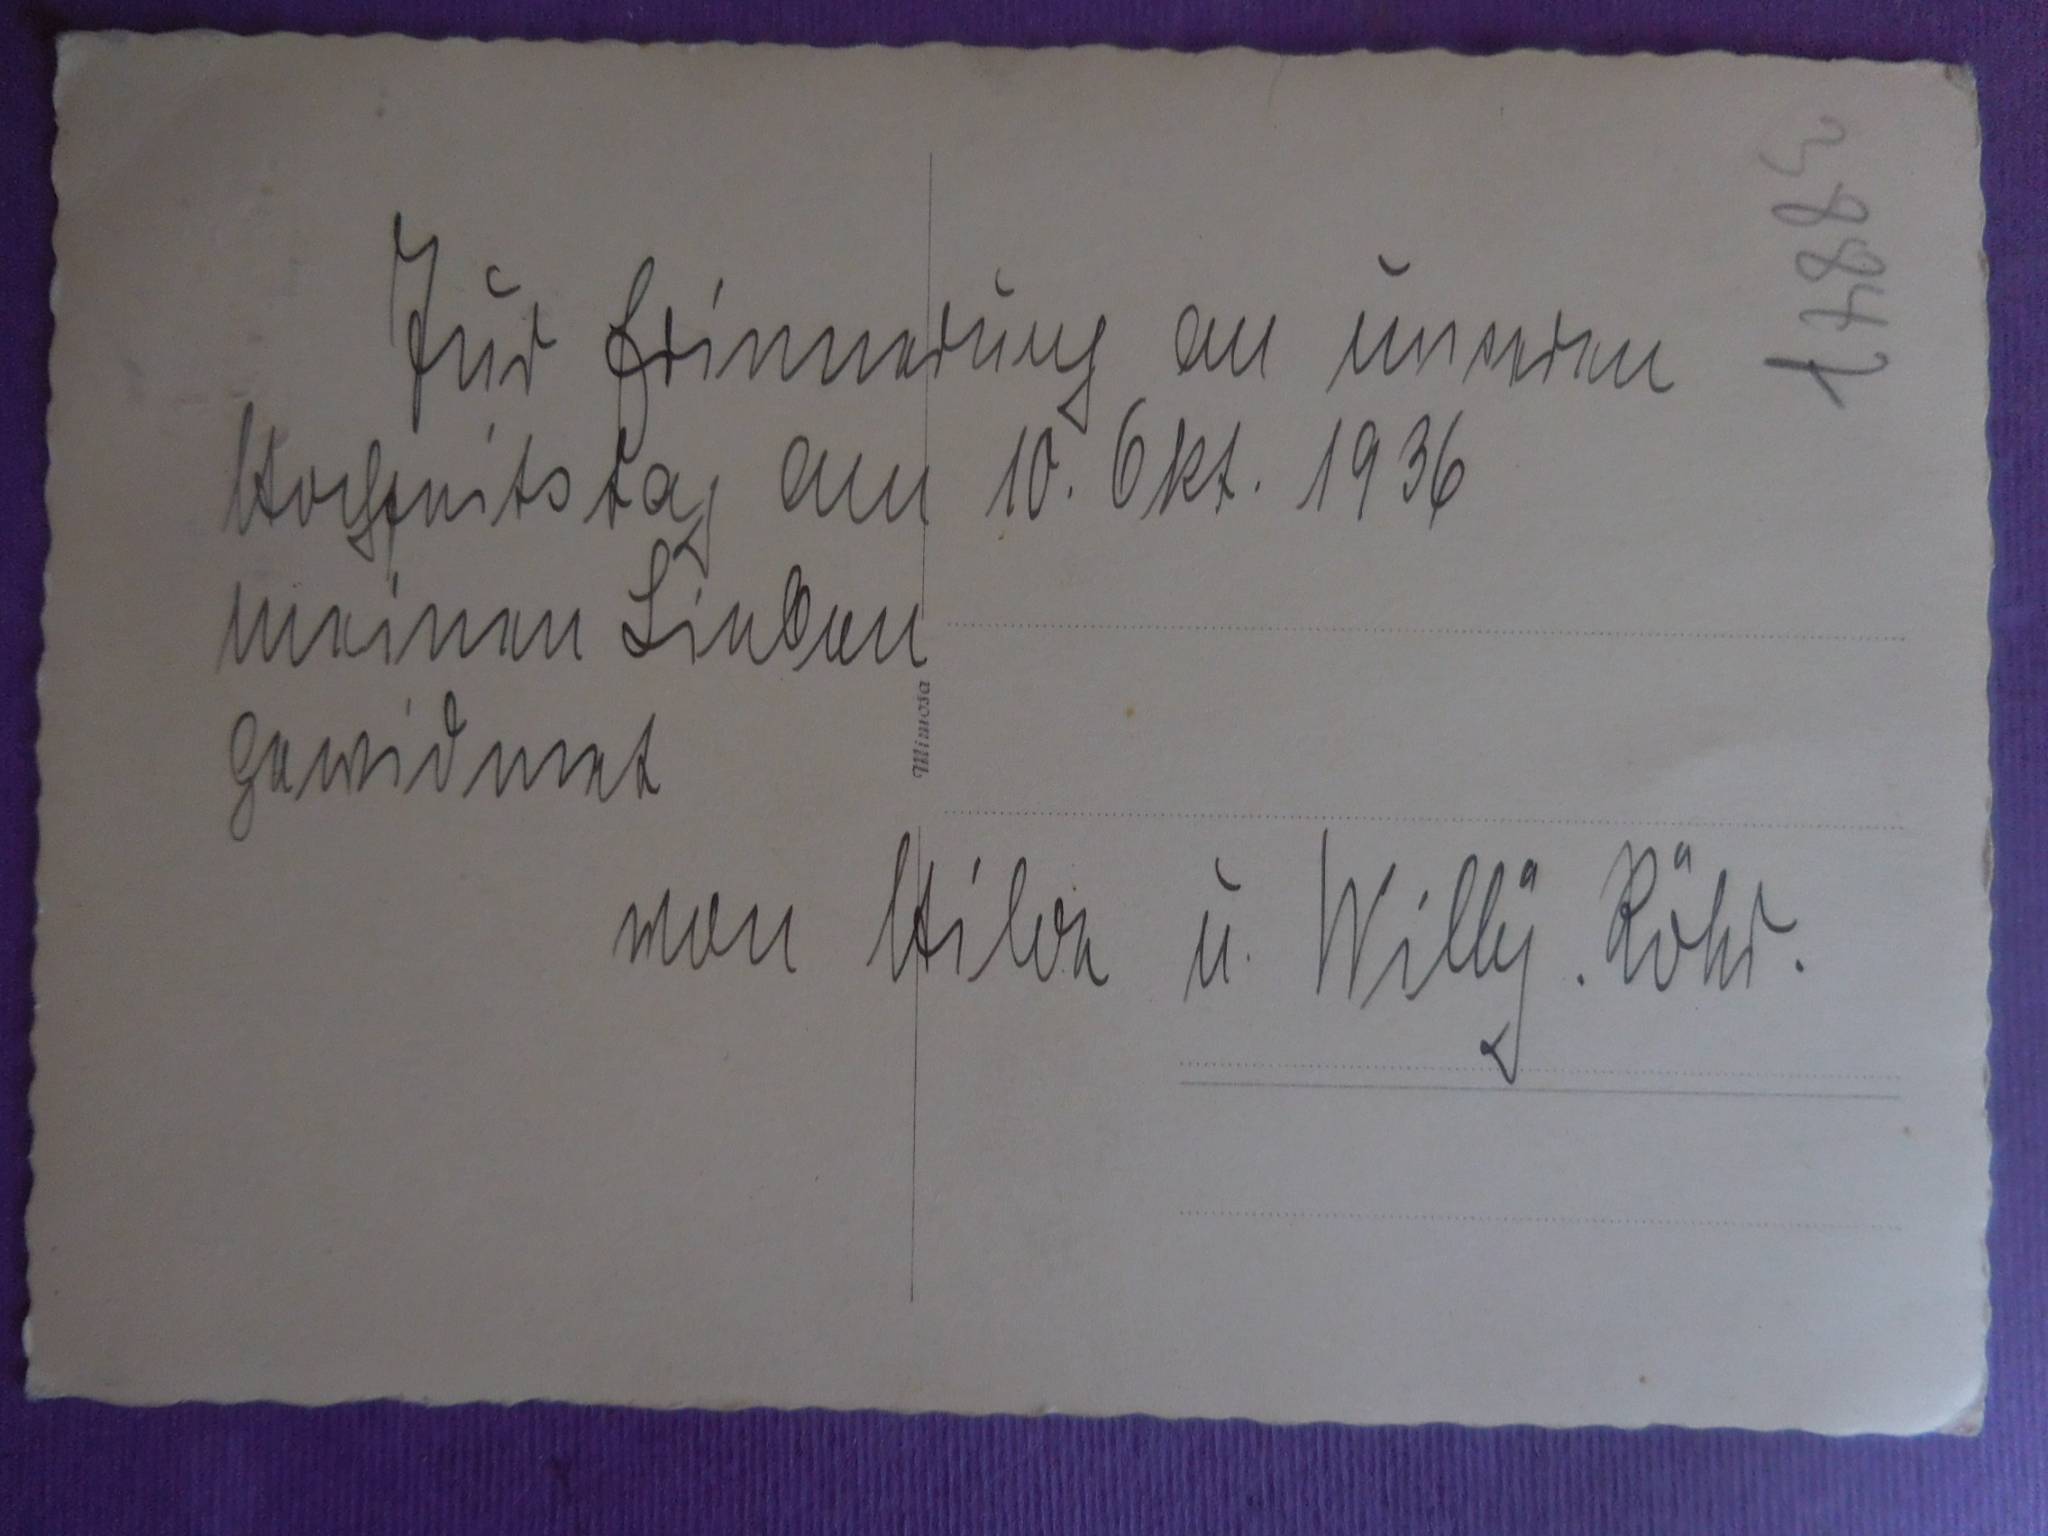 Zur Erinnerung an unseren
Hochzeitstag am 10. Okt. 1936
meinen Lieben
gewidmet
von Hilde u. Willÿ. Röhr.
Mimosa